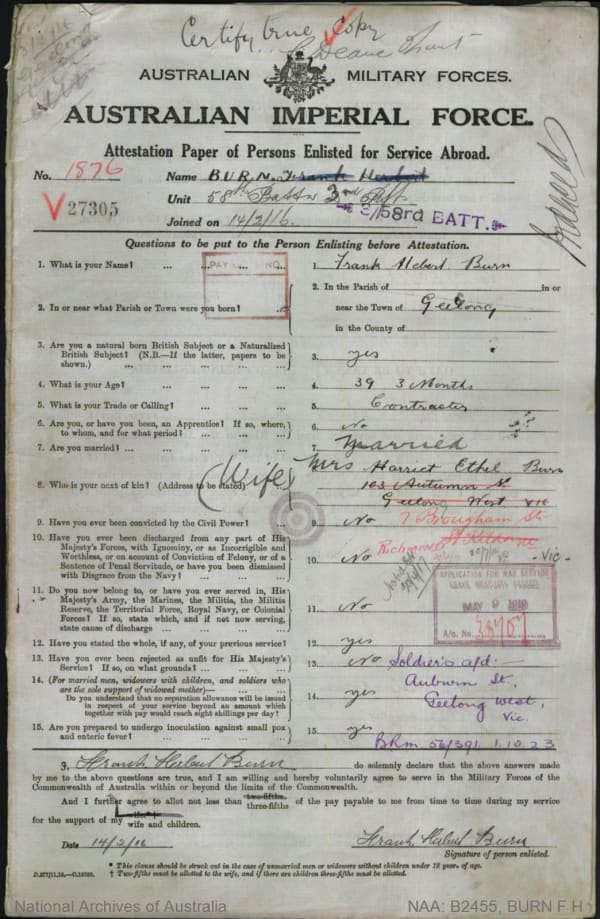 Certify true Copy
AUSTRALIAN MILITARY FORCES.
AUSTRALIAN IMPERIAL FORCE.
Attestation Paper of Persons Enlisted for Service Abroad.
No. 1876 Name BURN, Frank Herbert
V27305 Unit 58th Battn 3rd Rft
3/58rd BATT.
Joined on 14/2/16.
Questions to be put to the Person Enlisting before Attestation.
1. What is your Name? ... ... ... 1. Frank Hebert Burn
2. In or near what Parish or Town were you born? ... 2. In the Parish of in or
near the Town of Geelong
in the County of
3. Are you a natural born British Subject or a Naturalized
British Subject? (N.B.—If the latter, papers to be
shown.) ... ... ... ... 3. yes
4. What is your Age? ... ... ... ... 4. 39 3 Months
5. What is your Trade or Calling? ... ... ... 5. Contractor
6. Are you, or have you been, an Apprentice? If so, where,
to whom, and for what period? ... ... ... 6. No
7. Are you married? ... ... ... ... 7. Married
8. Who is your next of kin? (Address to be stated) (Wife) 8. Mrs Harriet Ethel Burn
103 Autumn St
Geelong West Vic
7 Brougham St
Richmond
St Kilda
Vic.
9. Have you ever been convicted by the Civil Power? ... 9. No
10. Have you ever been discharged from any part of His
Majesty's Forces, with Ignominy, or as Incorrigible and
Worthless, or on account of Conviction of Felony, or of a
Sentence of Penal Servitude, or have you been dismissed
with Disgrace from the Navy? ... ... ... 10. No
APPLICATION FOR WAR SERVICE
MAY 9 1918
A/c. No. 38707
11. Do you now belong to, or have you ever served in, His
Majesty's Army, the Marines, the Militia, the Militia
Reserve, the Territorial Force, Royal Navy, or Colonial
Forces? If so, state which, and if not now serving,
state cause of discharge ... ... ... ... 11. No
12. Have you stated the whole, if any, of your previous service? 12. yes
13. Have you ever been rejected as unfit for His Majesty's
Service? If so, on what grounds? ... ... ... 13. No
Soldier's add:
Auburn St,
Geelong West,
Vic.
14. (For married men, widowers with children, and soldiers who
are the sole support of widowed mother)—
Do you understand that no separation allowance will be issued
in respect of your service beyond an amount which
together with pay would reach eight shillings per day? 14. yes
15. Are you prepared to undergo inoculation against small pox
and enteric fever? ... ... ... ... 15. yes
BRm. 56/391 1.10.23
I, Frank Herbert Burn do solemnly declare that the above answers made
by me to the above questions are true, and I am willing and hereby voluntarily agree to serve in the Military Forces of the
Commonwealth of Australia within or beyond the limits of the Commonwealth.
And I further agree to allot not less than two-fifths three-fifths of the pay payable to me from time to time during my service
for the support of my wife* † wife and children.
Date 14/2/16 Frank Herbert Burn
Signature of person enlisted.
* This clause should be struck out in the case of unmarried men or widowers without children under 18 years of age.
† Two-fifths must be allotted to the wife, and if there are children three-fifths must be allotted.
National Archives of Australia NAA: B2455, BURN F H